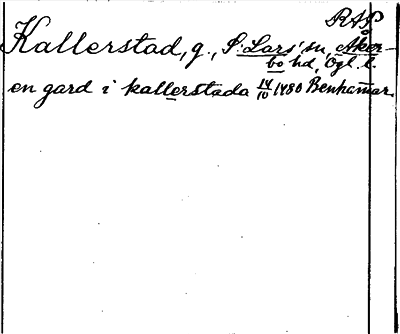 RAP
Kallerstad, g., S:Lars' sn, Åker-
bo hd, Ögl. l.
en gard i kallerstada 14/10 1480 Benhamar.